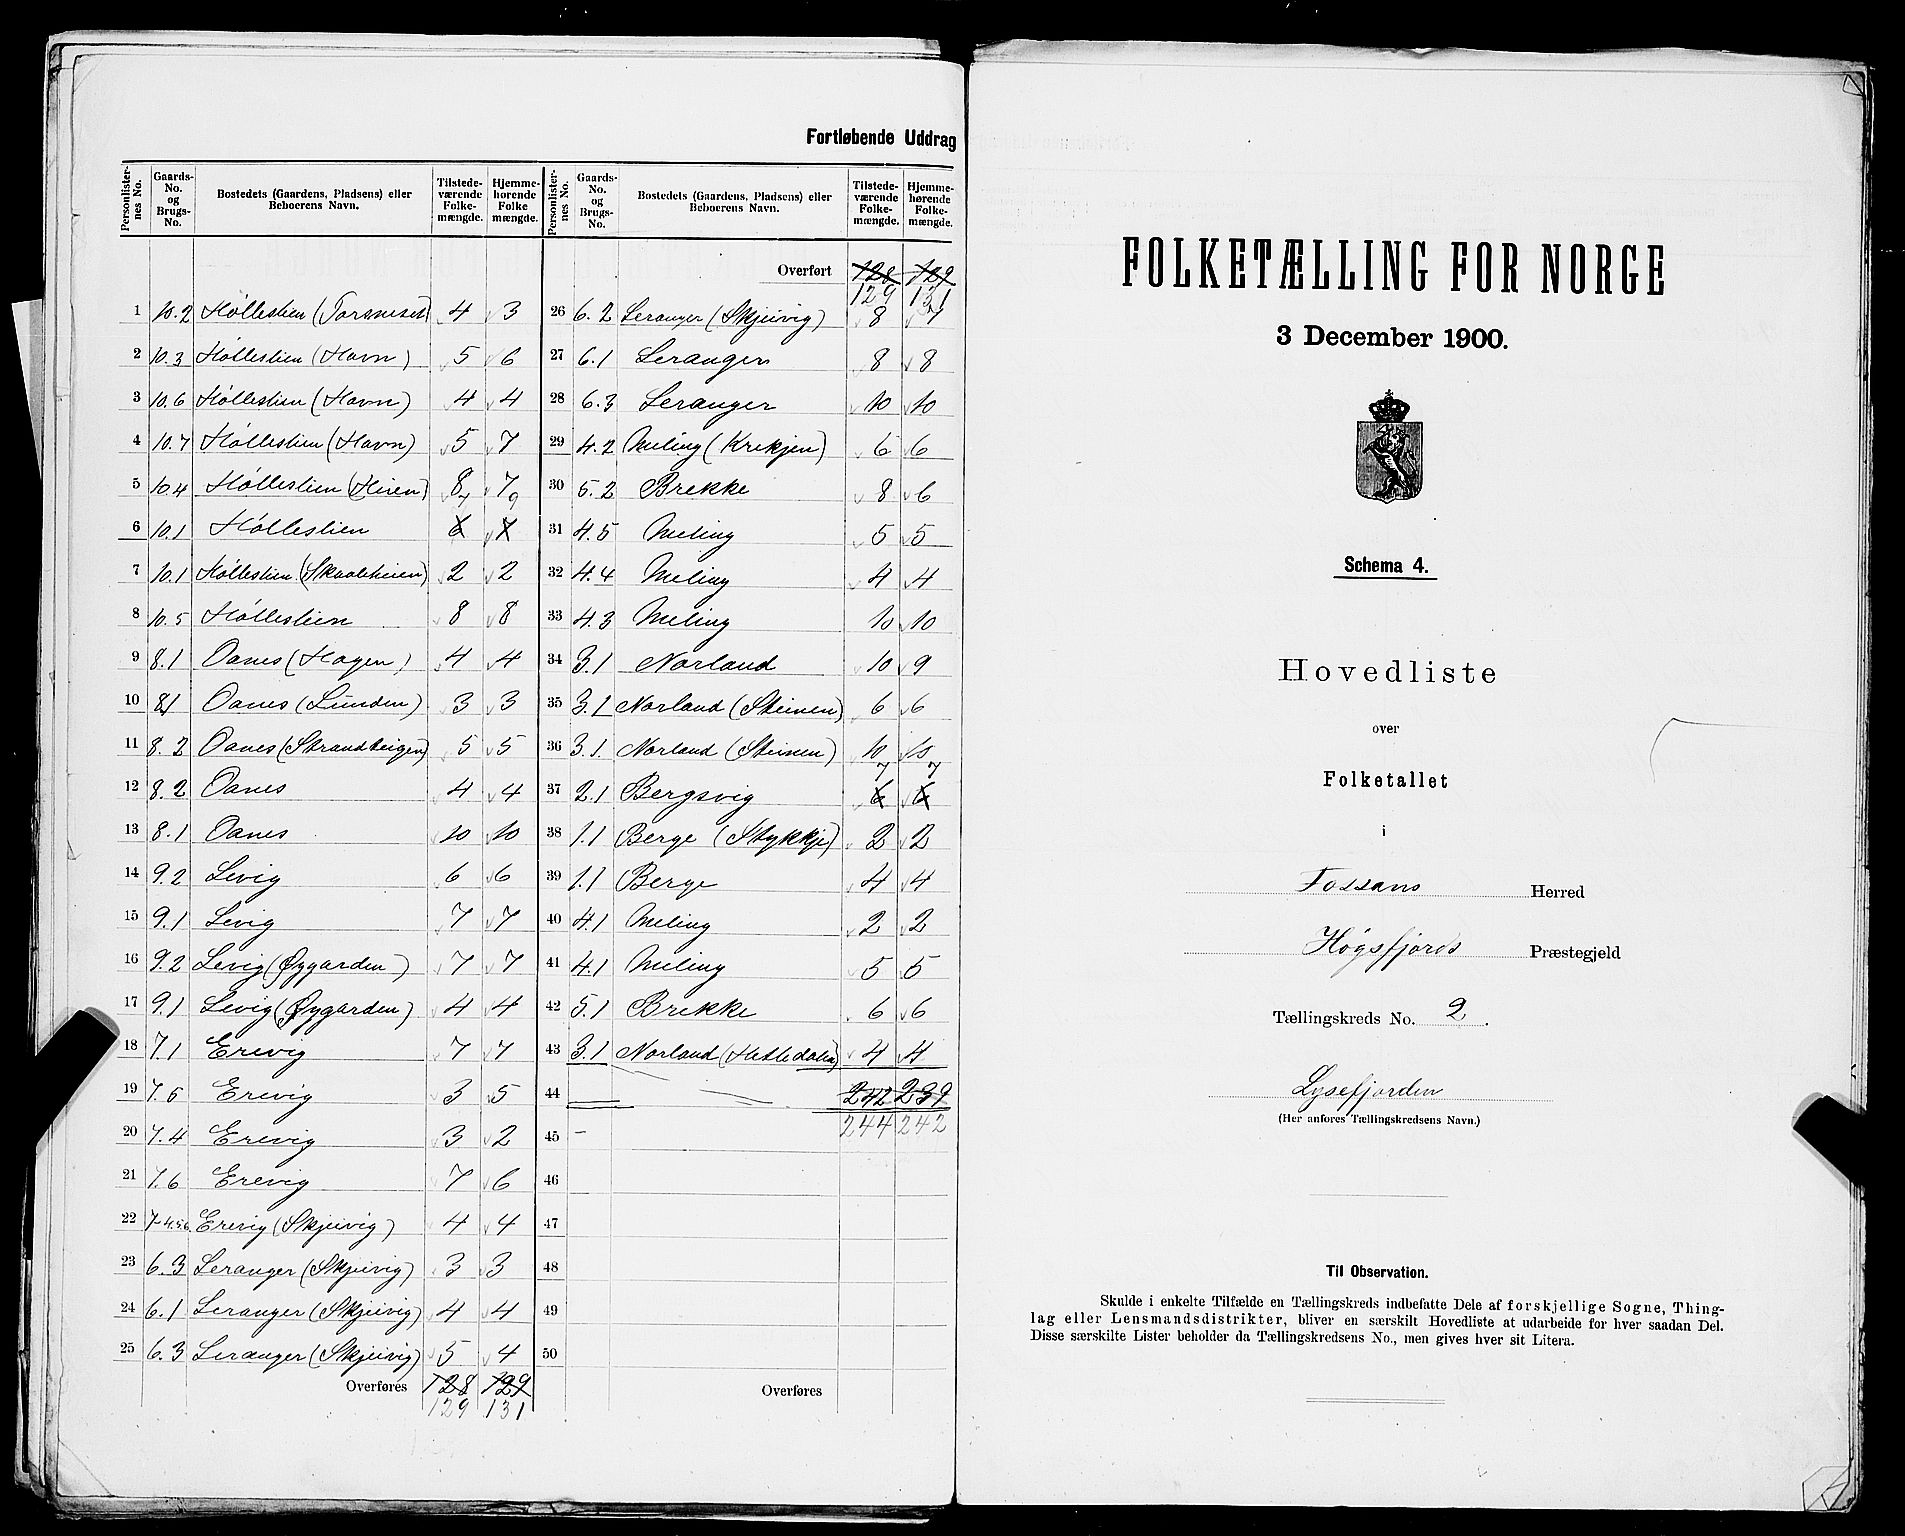 Fortløbende Uddrag
Personlisternes No. | Gaards-No. og Brugs-No. | Bostedets (Gaardens, Pladsens) eller Beboerens Navn. | Tilstedeværende Folkemængde. | Hjemmehørende Folkemængde.
1 10.2 Høllestien (Torsneset) 4 3
2 10.3 Høllestien (Havn) 5 6
3 10.6 Høllestien (Havn) 4 4
4 10.7 Høllestien (Havn) 5 7
5 10.4 Høllestien (Heien) 8 7
6 10.1 Høllestien 6 7 7 9
7 10.1 Høllestien (Skaaleheien) 2 2
8 10.5 Høllestien 8 8
9 8.1 Oanes (Hagen) 4 4
10 8.1 Oanes (Lunden) 3 3
11 8.2 Oanes (Strandteigen) 5 5
12 8.2 Oanes 4 4
13 8.1 Oanes 10 10
14 9.2 Levig 6 6
15 9.1 Levig 7 7
16 9.2 Levig (Øygarden) 7 7
17 9.1 Levig (Øygarden) 4 4
18 7.1 Erevig 7 7
19 7.5 Erevig 3 5
20 7.4 Erevig 3 2
21 7.6 Erevig 7 6
22 7-4.5.6 Erevig (Skjeivig) 4 4
23 6.3 Leranger (Skjeivig) 3 3
24 6.1 Leranger (Skjeivig) 4 4
25 6.3 Leranger (Skjeivig) 5 4
Overføres 128 129
129 131
Personlisternes No. | Gaards-No. og Brugs-No. | Bostedets (Gaardens, Pladsens) eller Beboerens Navn. | Tilstedeværende Folkemængde. | Hjemmehørende Folkemængde.
Overført 128 129
129 131
26 6.2 Leranger (Skjeivig) 8 7
27 6.1 Leranger 8 8
28 6.3 Leranger 10 10
29 4.2 Meling (Krekjen) 6 6
30 5.2 Brekke 8 6
31 4.5 Meling 5 5
32 4.4 Meling 4 4
33 4.3 Meling 10 10
34 3.1 Norland 10 9
35 3.1 Norland (Steinen) 6 6
36 3.1 Norland (Steinen) 10 10
37 2.1 Bergsvig 6 7 6 7
38 1.1 Berge (Stykkje) 2 2
39 1.1 Berge 4 4
40 4.1 Meling 2 2
41 4.1 Meling 5 5
42 5.1 Brekke 6 6
43 3.1 Norland (Hetledalen) 4 4
44 242 239
45 244 242
46
47
48
49
50
Overføres
FOLKETÆLLING FOR NORGE
3 December 1900.
Schema 4.
Hovedliste
over
Folketallet
i
Fossans Herred
Høgsfjords Præstegjeld
Tællingskreds No. 2.
Lysefjorden
(Her anføres Tællingskredsens Navn.)
Til Observation.
Skulde i enkelte Tilfælde en Tællingskreds indbefatte Dele af forskjellige Sogne, Thing-
lag eller Lensmandsdistrikter, bliver en særskilt Hovedliste at udarbeide for hver saadan Del.
Disse særskilte Lister beholder da Tællingskredsens No., men gives hver sit Litera.